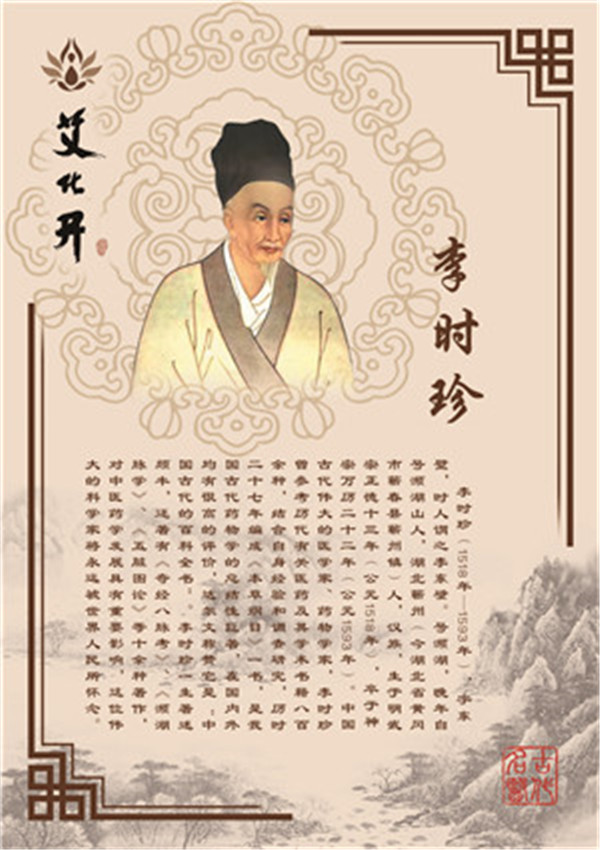 艾化开
李时珍
李时珍（1518年—1593年），字东
璧，时人谓之李东璧。号濒湖，晚年自
号濒湖山人，湖北蕲州（今湖北省黄冈
市蕲春县蕲州镇）人，汉族，生于明武
宗正德十三年（公元1518年），卒于神
宗万历二十二年（公元1593年）。中国
古代伟大的医学家、药物学家，李时珍
曾参考历代有关医药及其学术书籍八百
余种，结合自身经验和调查研究，历时
二十七年编成《本草纲目》一书，是我
国古代药物学的总结性巨著，在国内外
均有很高的评价，达尔文称赞它是“中
国古代的百科全书”。李时珍一生著述
颇丰，还著有《奇经八脉考》、《濒湖
脉学》、《五脏图论》等十余种著作，
对中医药学发展具有重要影响，这位伟
大的科学家将永远被世界人民所怀念。
古代
名医